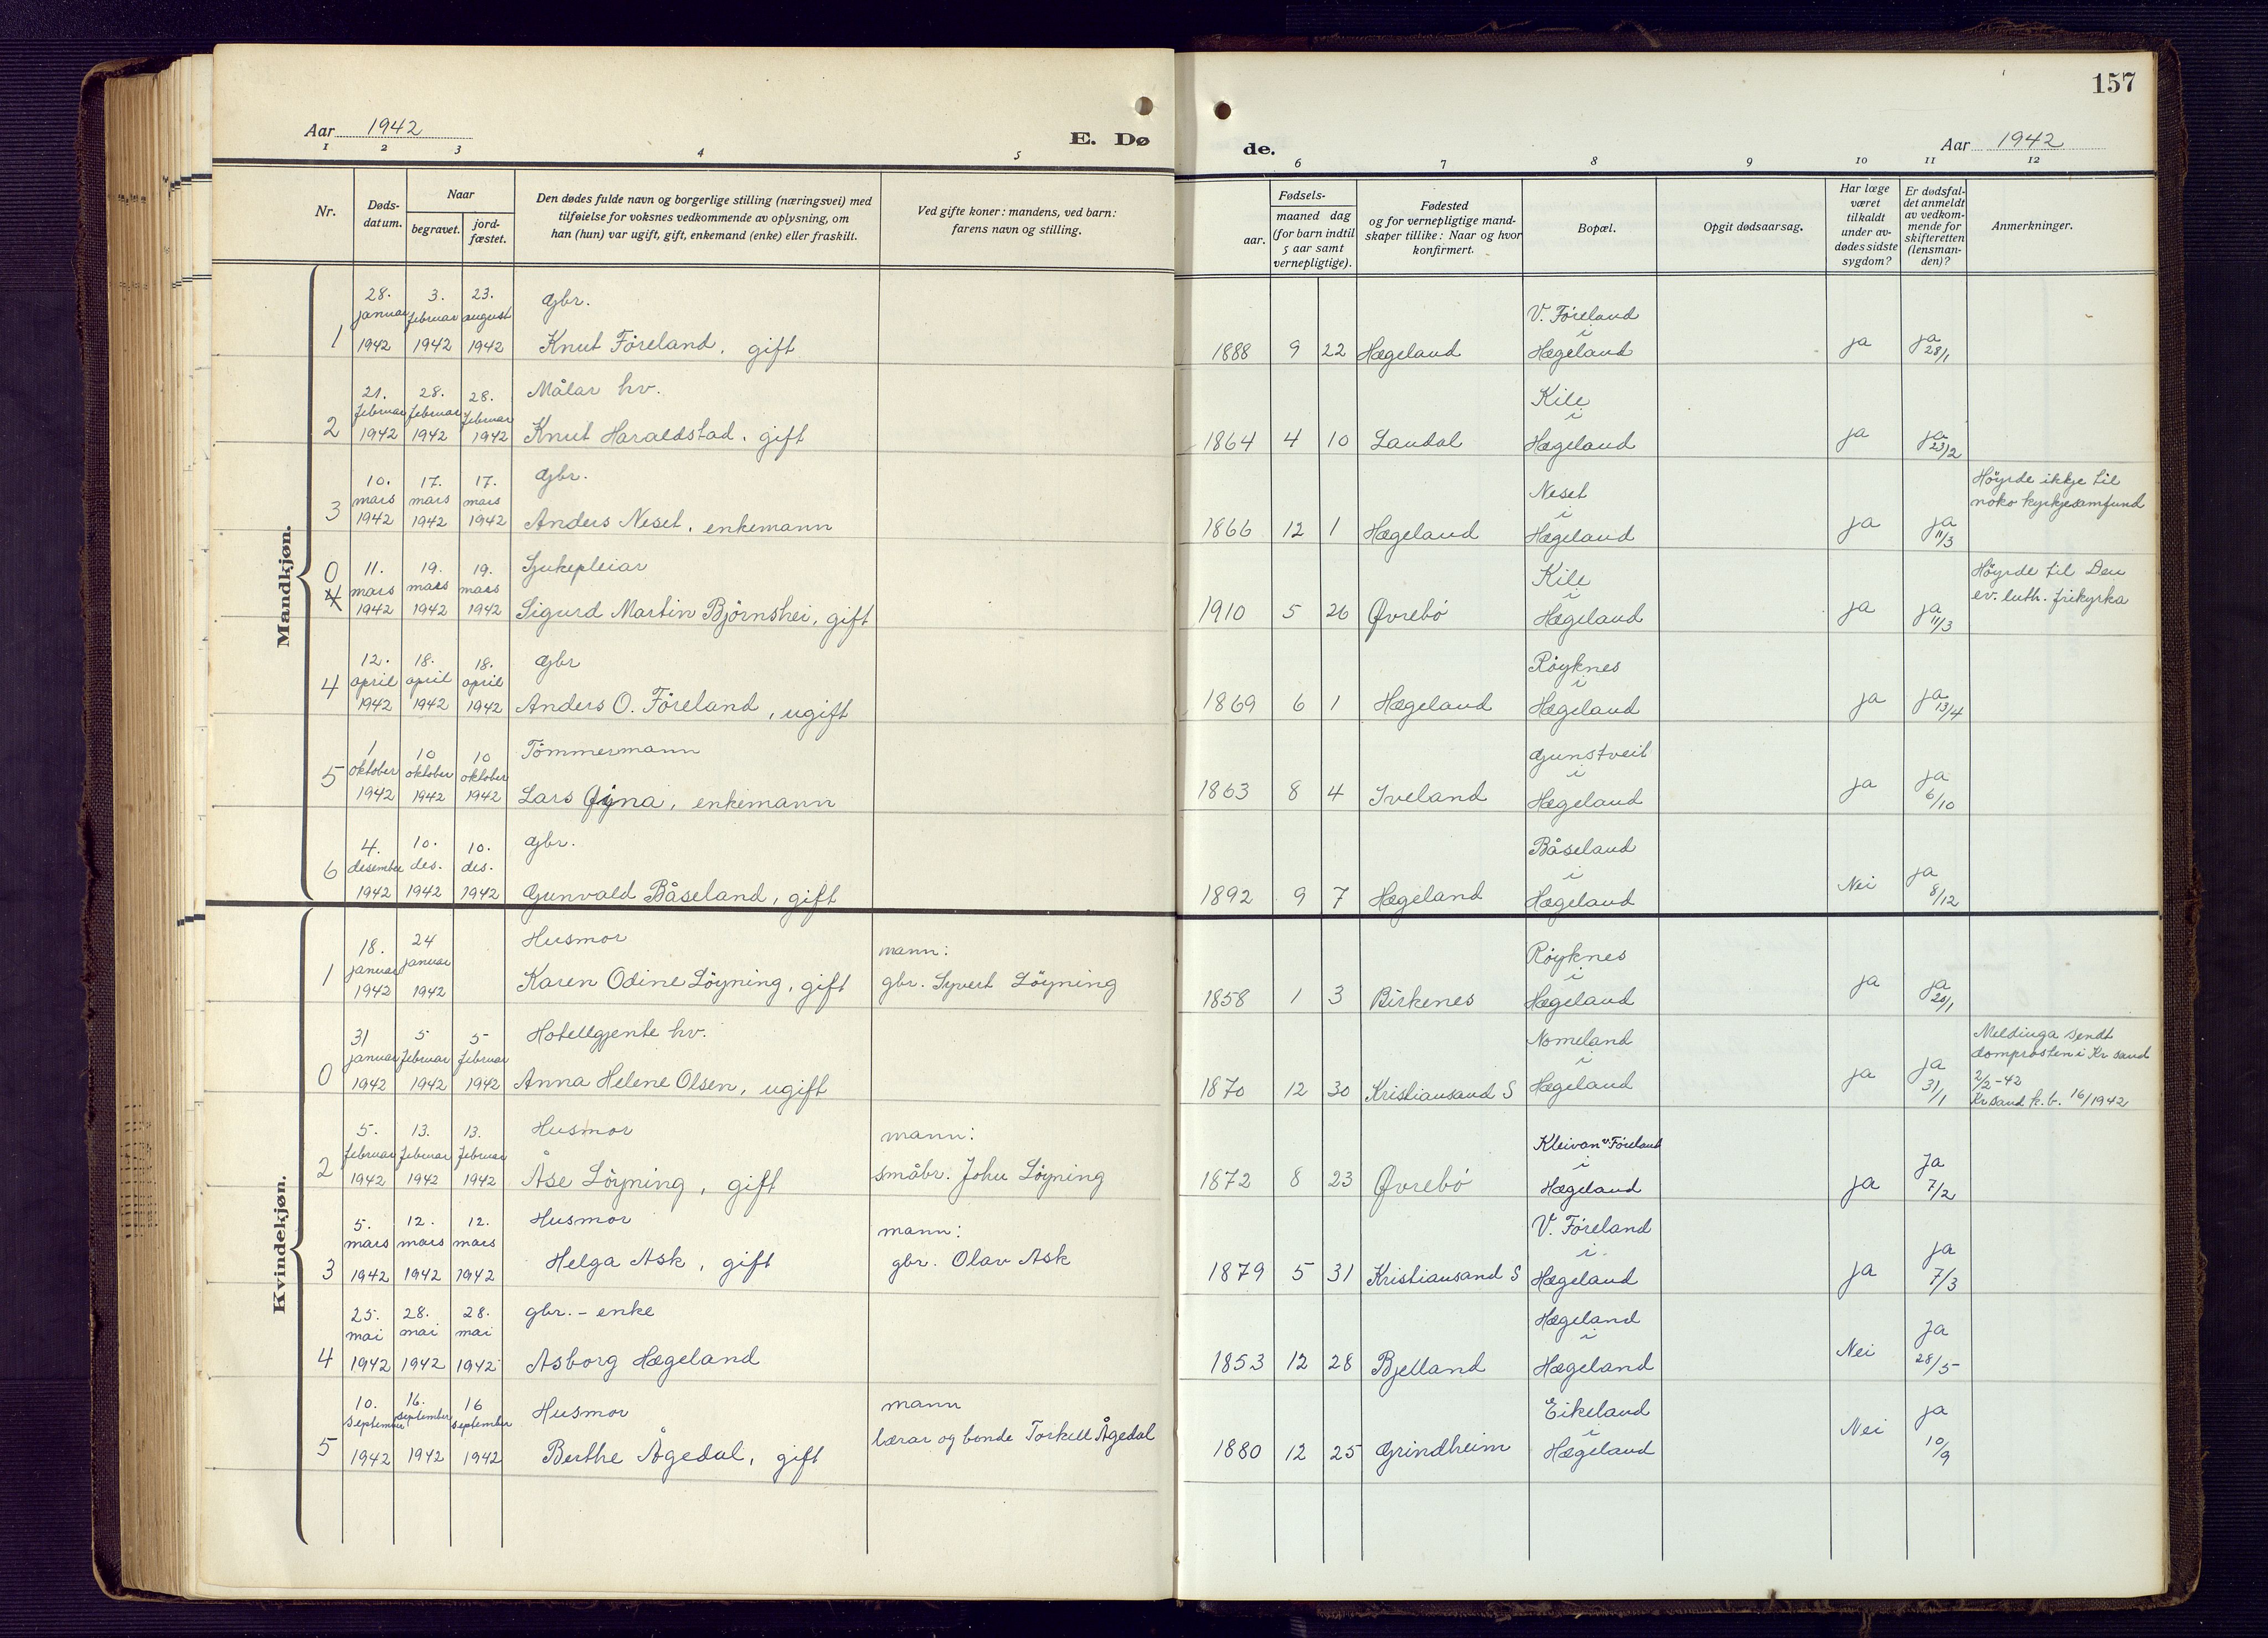 157
Aar 1942
E. Dø
de.
Aar 1942
1 2 3 4 5
6 7 8 9 10 11 12
Nr.
Døds-
datum.
Naar
begravet.
jord-
fæstet.
Den dødes fulde navn og borgerlige stilling (næringsvei) med
tilføielse for voksnes vedkommende av oplysning, om
han (hun) var ugift, gift, enkemand (enke) eller fraskilt.
Ved gifte koner: mandens, ved barn:
farens navn og stilling.
Fødsels-
aar.
maaned dag
(for barn indtil
5 aar samt
vernepligtige).
Fødested
og for vernepligtige mand-
skaper tillike: Naar og hvor
konfirmert.
Bopæl.
Opgit dødsaarsag.
Har læge
været
tilkaldt
under av-
dødes sidste
sygdom?
Er dødsfal-
det anmeldt
av vedkom-
mende for
skifteretten
(lensman-
den)?
Anmerkninger.
Mandkjøn.
28. 3. 23. gbr. V. Föreland
januar februar august i
1 1942 1942 1942 Knut Föreland, gift 1888 9 22 Hægeland Hægeland ja ja 28/1
21. 28. 28. Målar hv. Kile
februar februar februar i
2 1942 1942 1942 Knut Haraldstad, gift 1864 4 10 Laudal Hægeland ja ja 23/2
10. 17. 17. gbr. Neset Höyrde ikkje til
mars mars mars i noko kyrkjesamfund
3 1942 1942 1942 Anders Neset, enkemann 1866 12 1 Hægeland Hægeland ja ja 11/3
0 11. 19. 19. Sjukepleiar Kile Höyrde til Den
4 mars mars mars i ev. luth. frikyrka
1942 1942 1942 Sigurd Martin Björnshei, gift 1910 5 26 Øvrebö Hægeland ja ja 11/3
12. 18. 18. gbr Röyknes
4 april april april i
1942 1942 1942 Anders O. Föreland, ugift 1869 6 1 Hægeland Hægeland ja ja 13/4
1 10 10 Tömmermann Gunstveit
5 oktober oktober oktober i
1942 1942 1942 Lars Øyna, enkemann 1863 8 4 Iveland Hægeland ja ja 6/10
4. 10. 10. gbr. Båseland
6 desember des. des. i
1942 1942 1942 Gunvald Båseland, gift 1892 9 7 Hægeland Hægeland Nei ja 8/12
Kvindekjøn.
18. 24 Husmor mann: Röyknes
januar januar i
1 1942 1942 Karen Odine Löyning, gift gbr. Syvert Löyning 1858 1 3 Birkenes Hægeland ja ja 20/1
31 5 5 Hotellgjente hv. Nomeland Meldinga sendt
januar februar februar i domprosten i Kr sand
0 1942 1942 1942 Anna Helene Olsen, ugift 1870 12 30 Kristiansand S Hægeland ja ja 31/1 2/2-42
Kr sand k.b. 16/1942
5. 13. 13. Husmor mann: Kleivan v Föreland
februar februar februar i
2 1942 1942 1942 Åse Löyning, gift småbr. John Löyning 1872 8 23 Øvrebö Hægeland ja Ja 7/2
5. 12. 12. Husmor mann: V. Föreland
mars mars mars i
3 1942 1942 1942 Helga Ask, gift gbr. Olav Ask 1879 5 31 Kristiansand S Hægeland ja ja 7/3
25. 28. 28. gbr. - enke Hægeland
mai mai mai i
4 1942 1942 1942 Asborg Hægeland 1853 12 28 Bjelland Hægeland Nei Ja 28/5
10. 16. 16 Husmor mann Eikeland
september september september lærar og bonde Torkell Ågedal i
5 1942 1942 1942 Berthe Ågedal, gift 1880 12 25 Grindheim Hægeland Nei ja 10/9